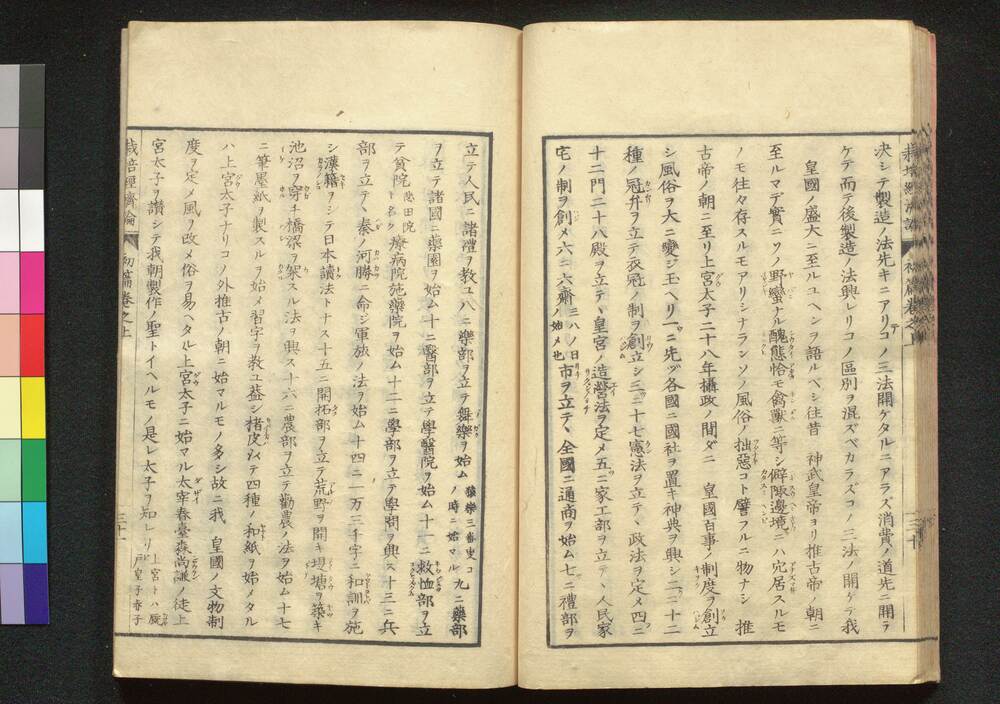 決シテ製造ノ法先キニアリテコノ三法開ケタルニアラズ消費ノ道先ニ開ラ
ケテ而テ後製造ノ法興レリコノ區別ヲ混ズベカラズコノ三法ノ開ケテ我
皇國ノ盛大ニ至ルユヘンヲ語ルベシ往昔 神武皇帝ヨリ推古帝ノ朝ニ
至ルマデ實ニソノ野蠻ナル醜態恰モ禽獸ニ等シ僻陬邊境ニハ穴居スルモ
ノモ往々存スルモアリシナランソノ風俗ノ拙惡コト譬フルニ物ナシ 推
古帝ノ朝ニ至リ上宮太子二十八年攝政ノ間ダニ 皇國百事ノ制度ヲ創立
シ風俗ヲ大ニ變ジ玉ヘリ一ニ先ヅ各國ニ國社ヲ置キ神典ヲ興シ二ニ十二
種ノ冠弁ヲ立テ衣冠ノ制ヲ創立シ三ニ十七憲法ヲ立テヽ政法ヲ定メ四ニ
十二門二十八殿ヲ立テヽ皇宮ノ造營法ヲ定メ五ニ家工部ヲ立テヽ人民家
宅ノ制ヲ創メ六ニ六齋三八ノ日ノ始メ也市ヲ立テヽ全國ニ通商ヲ始ム七ニ禮部ヲ
三十
立テ人民ニ諸禮ヲ教ユ八ニ樂部ヲ立テ舞樂ヲ始ム猿樂三番叟コノ時ニ始マル九ニ藥部
ヲ立テ諸國ニ藥園ヲ始ム十ニ醫部ヲ立テ學醫院ヲ始ム十一ニ救恤部ヲ立
テ貧院悲田院ト名ク療病院施藥院ヲ始ム十二ニ學部ヲ立テ學問ヲ興ス十三ニ兵
部ヲ立テヽ秦ノ河勝ニ命ジ軍旅ノ法ヲ始ム十四ニ一万三千字ニ和訓ヲ施
シ漢籍ヲシテ日本讀法トナス十五ニ開拓部ヲ立テ荒野ヲ開キ堤塘ヲ築キ
池沼ヲ穿チ橋梁ヲ架スル法ヲ興ス十六ニ農部ヲ立テ勸農ノ法ヲ始ム十七
ニ筆墨紙ヲ製スルヲ始メ習字ヲ教ユ葢シ楮皮ヲ以テ四種ノ和紙ヲ始メタル
ハ上宮太子ナリコノ外推古ノ朝ニ始マルモノ多シ故ニ我 皇國ノ文物制
度ヲ定メ風ヲ改メ俗ヲ易ヘタル上宮太子ニ始マル太宰春臺森尚謙ノ徒上
宮太子ヲ讃シテ我朝製作ノ聖トイヘルモノ是レ太子ヲ知レリ上宮トハ厩戸皇子春子
栽培經濟論 初篇卷之上 三十一